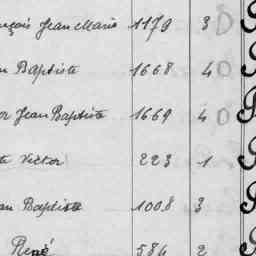 nçois Jean Marie 1179 3 D
n Baptiste 1668 40
or Jean Baptiste 1669 40
te Victor 223 1
an Baptiste 1008 3
René 584 2